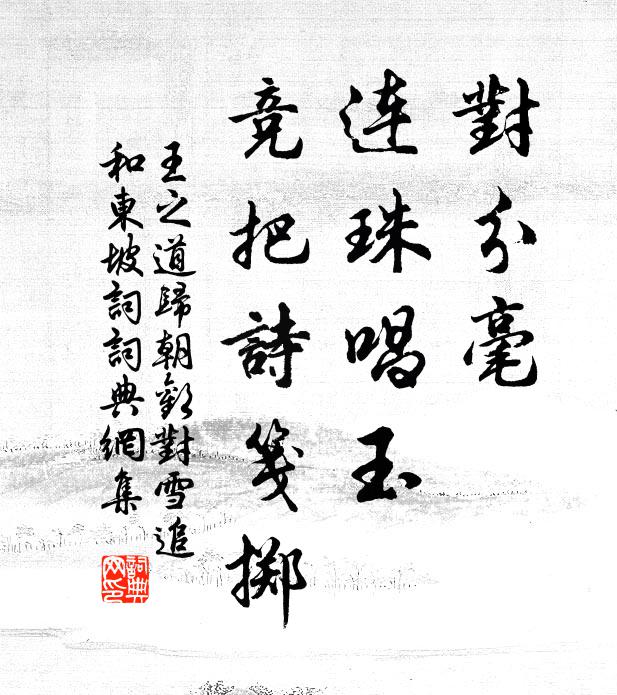 對分毫
連珠唱玉
竞把詩箋擲
王之道歸朝歡對雪追
和東坡詞詞典網集
詞典網印